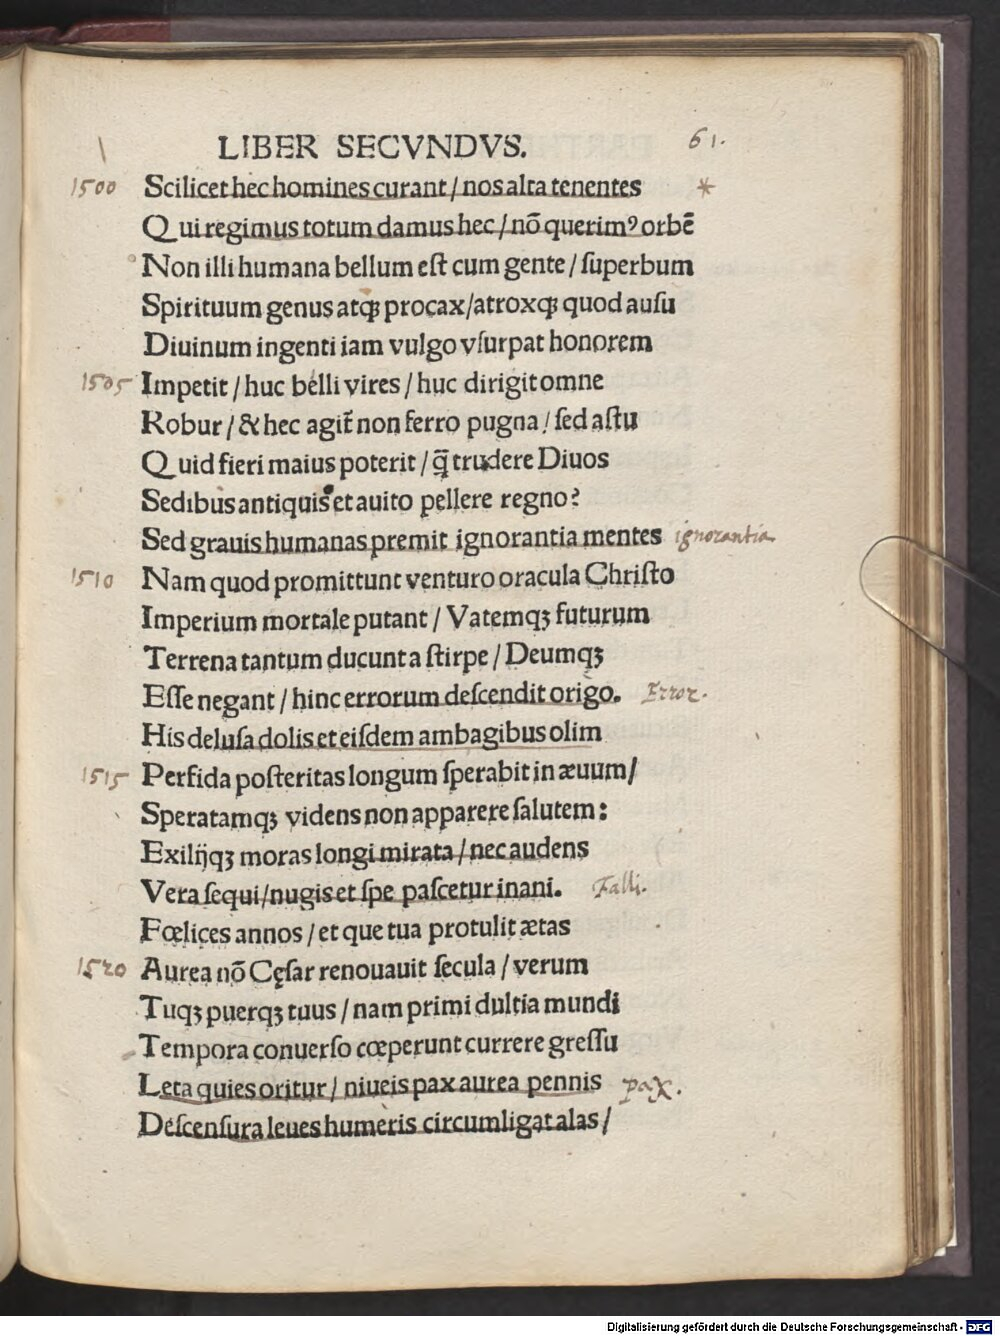 LIBER SECVNDVS. 61.
1500 Scilicet hec homines curant / nos alta tenentes *
Qui regimus totum damus hec / nō querimꝰ orbē
Non illi humana bellum est cum gente / superbum
Spirituum genus atqꝫ procax / atroxqꝫ quod ausu
Diuinum ingenti iam vulgo vsurpat honorem
1505 Impetit / huc belli vires / huc dirigit omne
Robur / & hec agit̃ non ferro pugna / sed astu
Quid fieri maius poterit / q̃ trudere Diuos
Sedibus antiquis et auito pellere regno?
Sed grauis humanas premit ignorantia mentes ignorantia
1510 Nam quod promittunt venturo oracula Christo
Imperium mortale putant / Vatemqꝫ futurum
Terrena tantum ducunt a stirpe / Deumqꝫ
Esse negant / hinc errorum descendit origo. Error.
His delusa dolis et eisdem ambagibus olim
1515 Perfida posteritas longum sperabit in æuum /
Speratamqꝫ videns non apparere salutem:
Exilijqꝫ moras longi mirata / nec audens
Vera sequi / nugis et spe pascetur inani. Falli.
Fœlices annos / et que tua protulit ætas
1520 Aurea nō Cęsar renouauit secula / verum
Tuqꝫ puerqꝫ tuus / nam primi dultia mundi
Tempora conuerso cœperunt currere gressu
Leta quies oritur / niueis pax aurea pennis pax.
Descensura leues humeris circumligat alas /
Digitalisierung gefördert durch die Deutsche Forschungsgemeinschaft - DFG